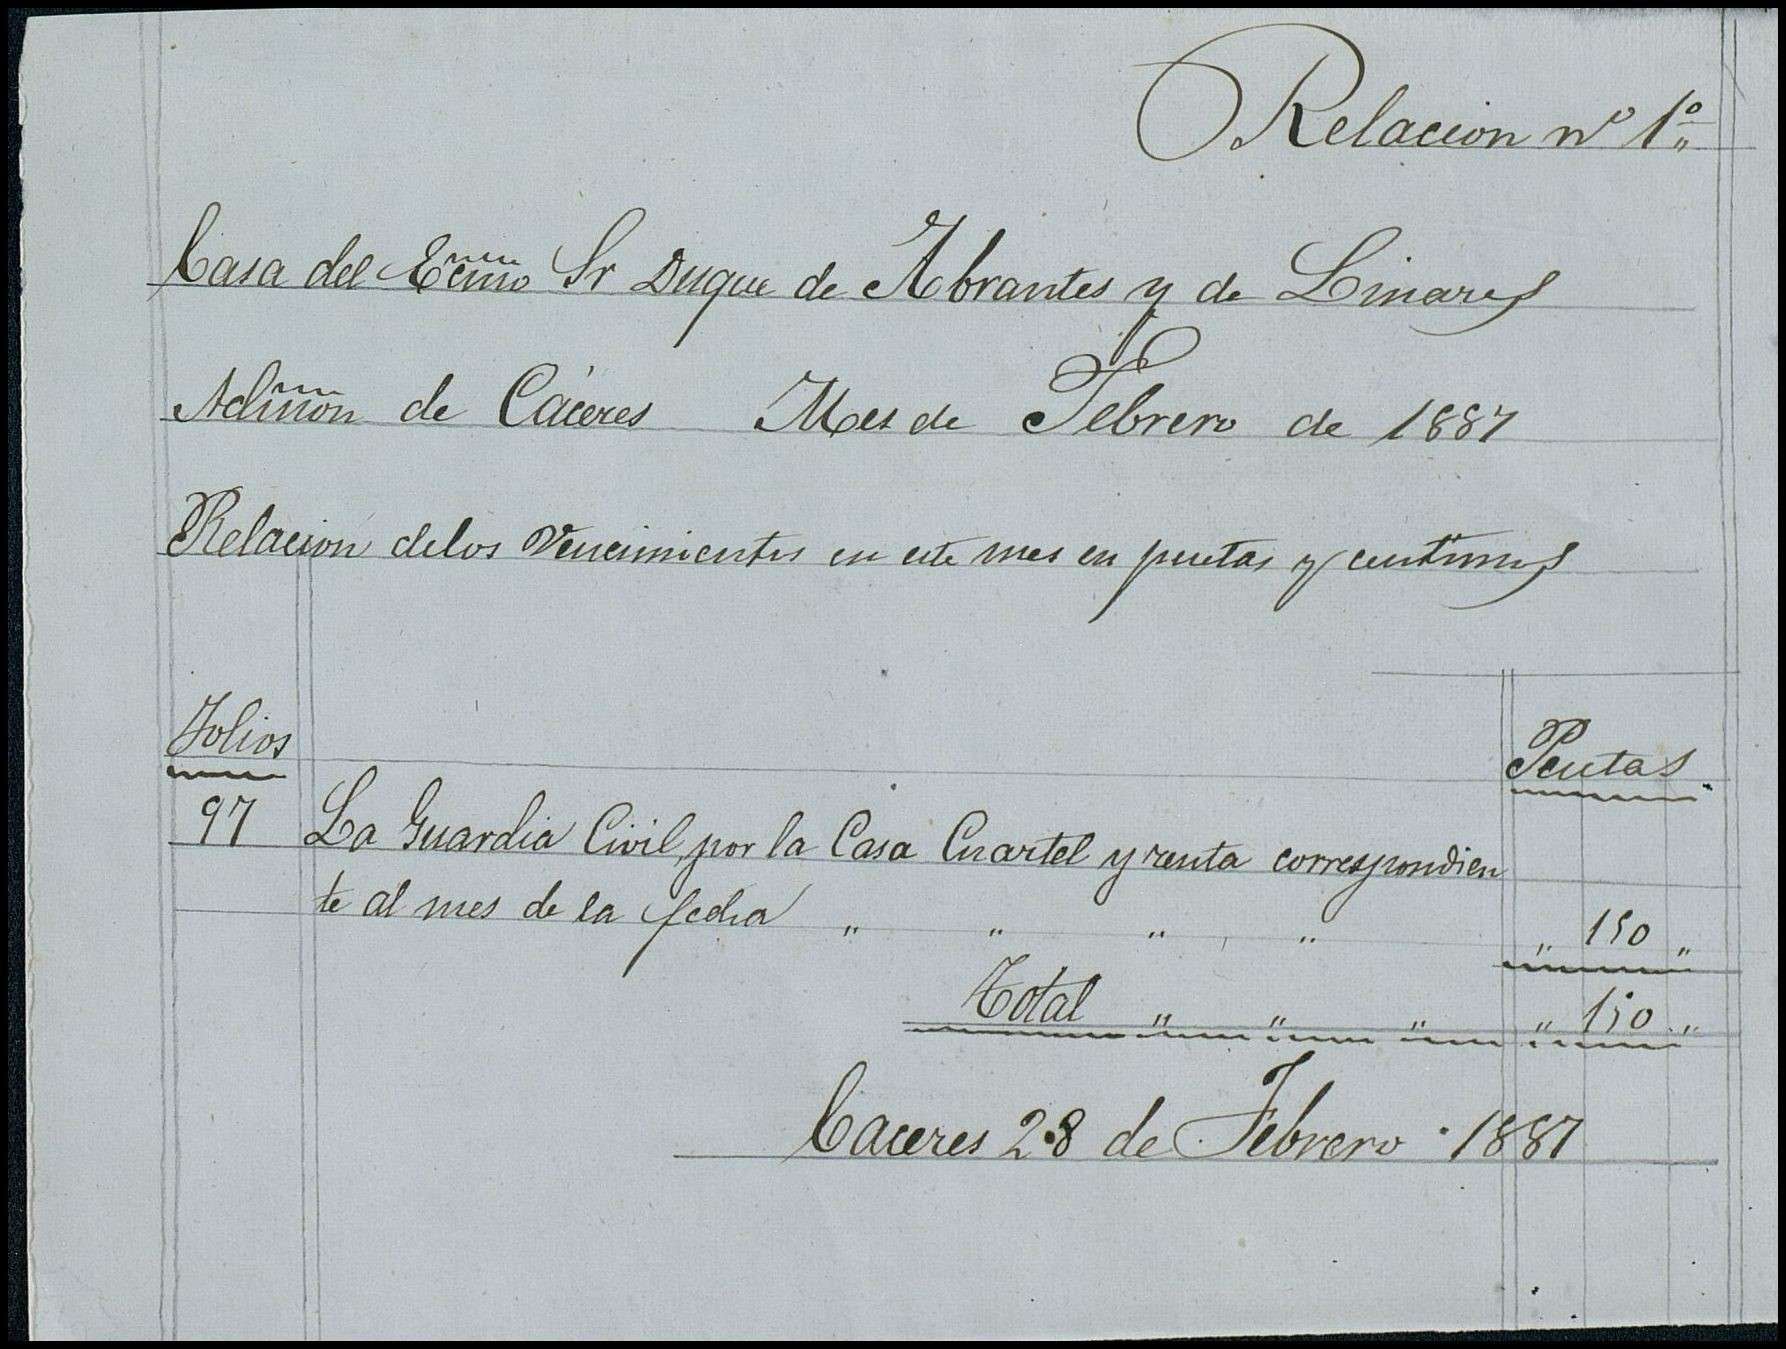 Relacion nº 1º „
Casa del Ecmo Sr Duque de Abrantes y de Linares
Admon de Cáceres Mes de Febrero de 1887
Relacion delos Vencimientos en este mes en pesetas y centimos
Folios
Pesetas
97 La Guardia Civil, por la Casa Cuartel y renta correspondien
te al mes de la fecha „ „ „ „ „ 150 „
Total „ „ „ „ 150 „
Caceres 28 de Febrero 1887